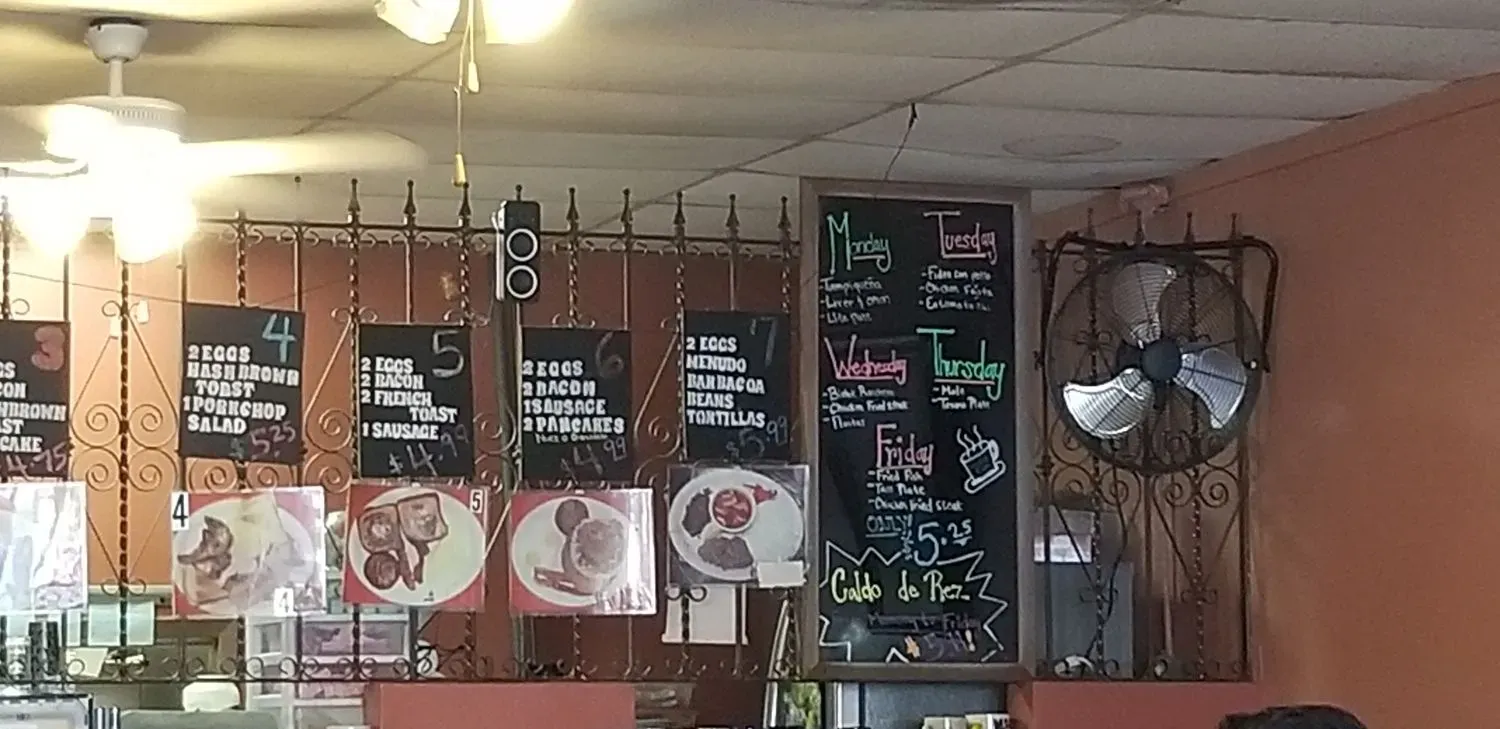 3
CON
CAKE
4.75
4
2 EGGS
HASHBROWN
TOAST
1 PORKCHOP
SALAD
$5.25
5
2 EGGS
2 BACON
2 FRENCH
TOAST
1 SAUSAGE
$4.99
6
2 EGGS
2 BACON
1 SAUSAGE
2 PANCAKES
$4.99
7
2 EGGS
MENUDO
BARBACOA
BEANS
TORTILLAS
$5.99
4
4
5
Monday
- Tampiqueña
- Liver & onion
Tuesday
- Fideo con pollo
- Chicken Fajita
Wednesday
- Chicken Fried steak
- Flautas
Thursday
- Mole
Friday
- Fried Fish
- Taco Plate
- Chicken fried steak
ONLY!
$5.25
Caldo de Rez
Monday & Friday